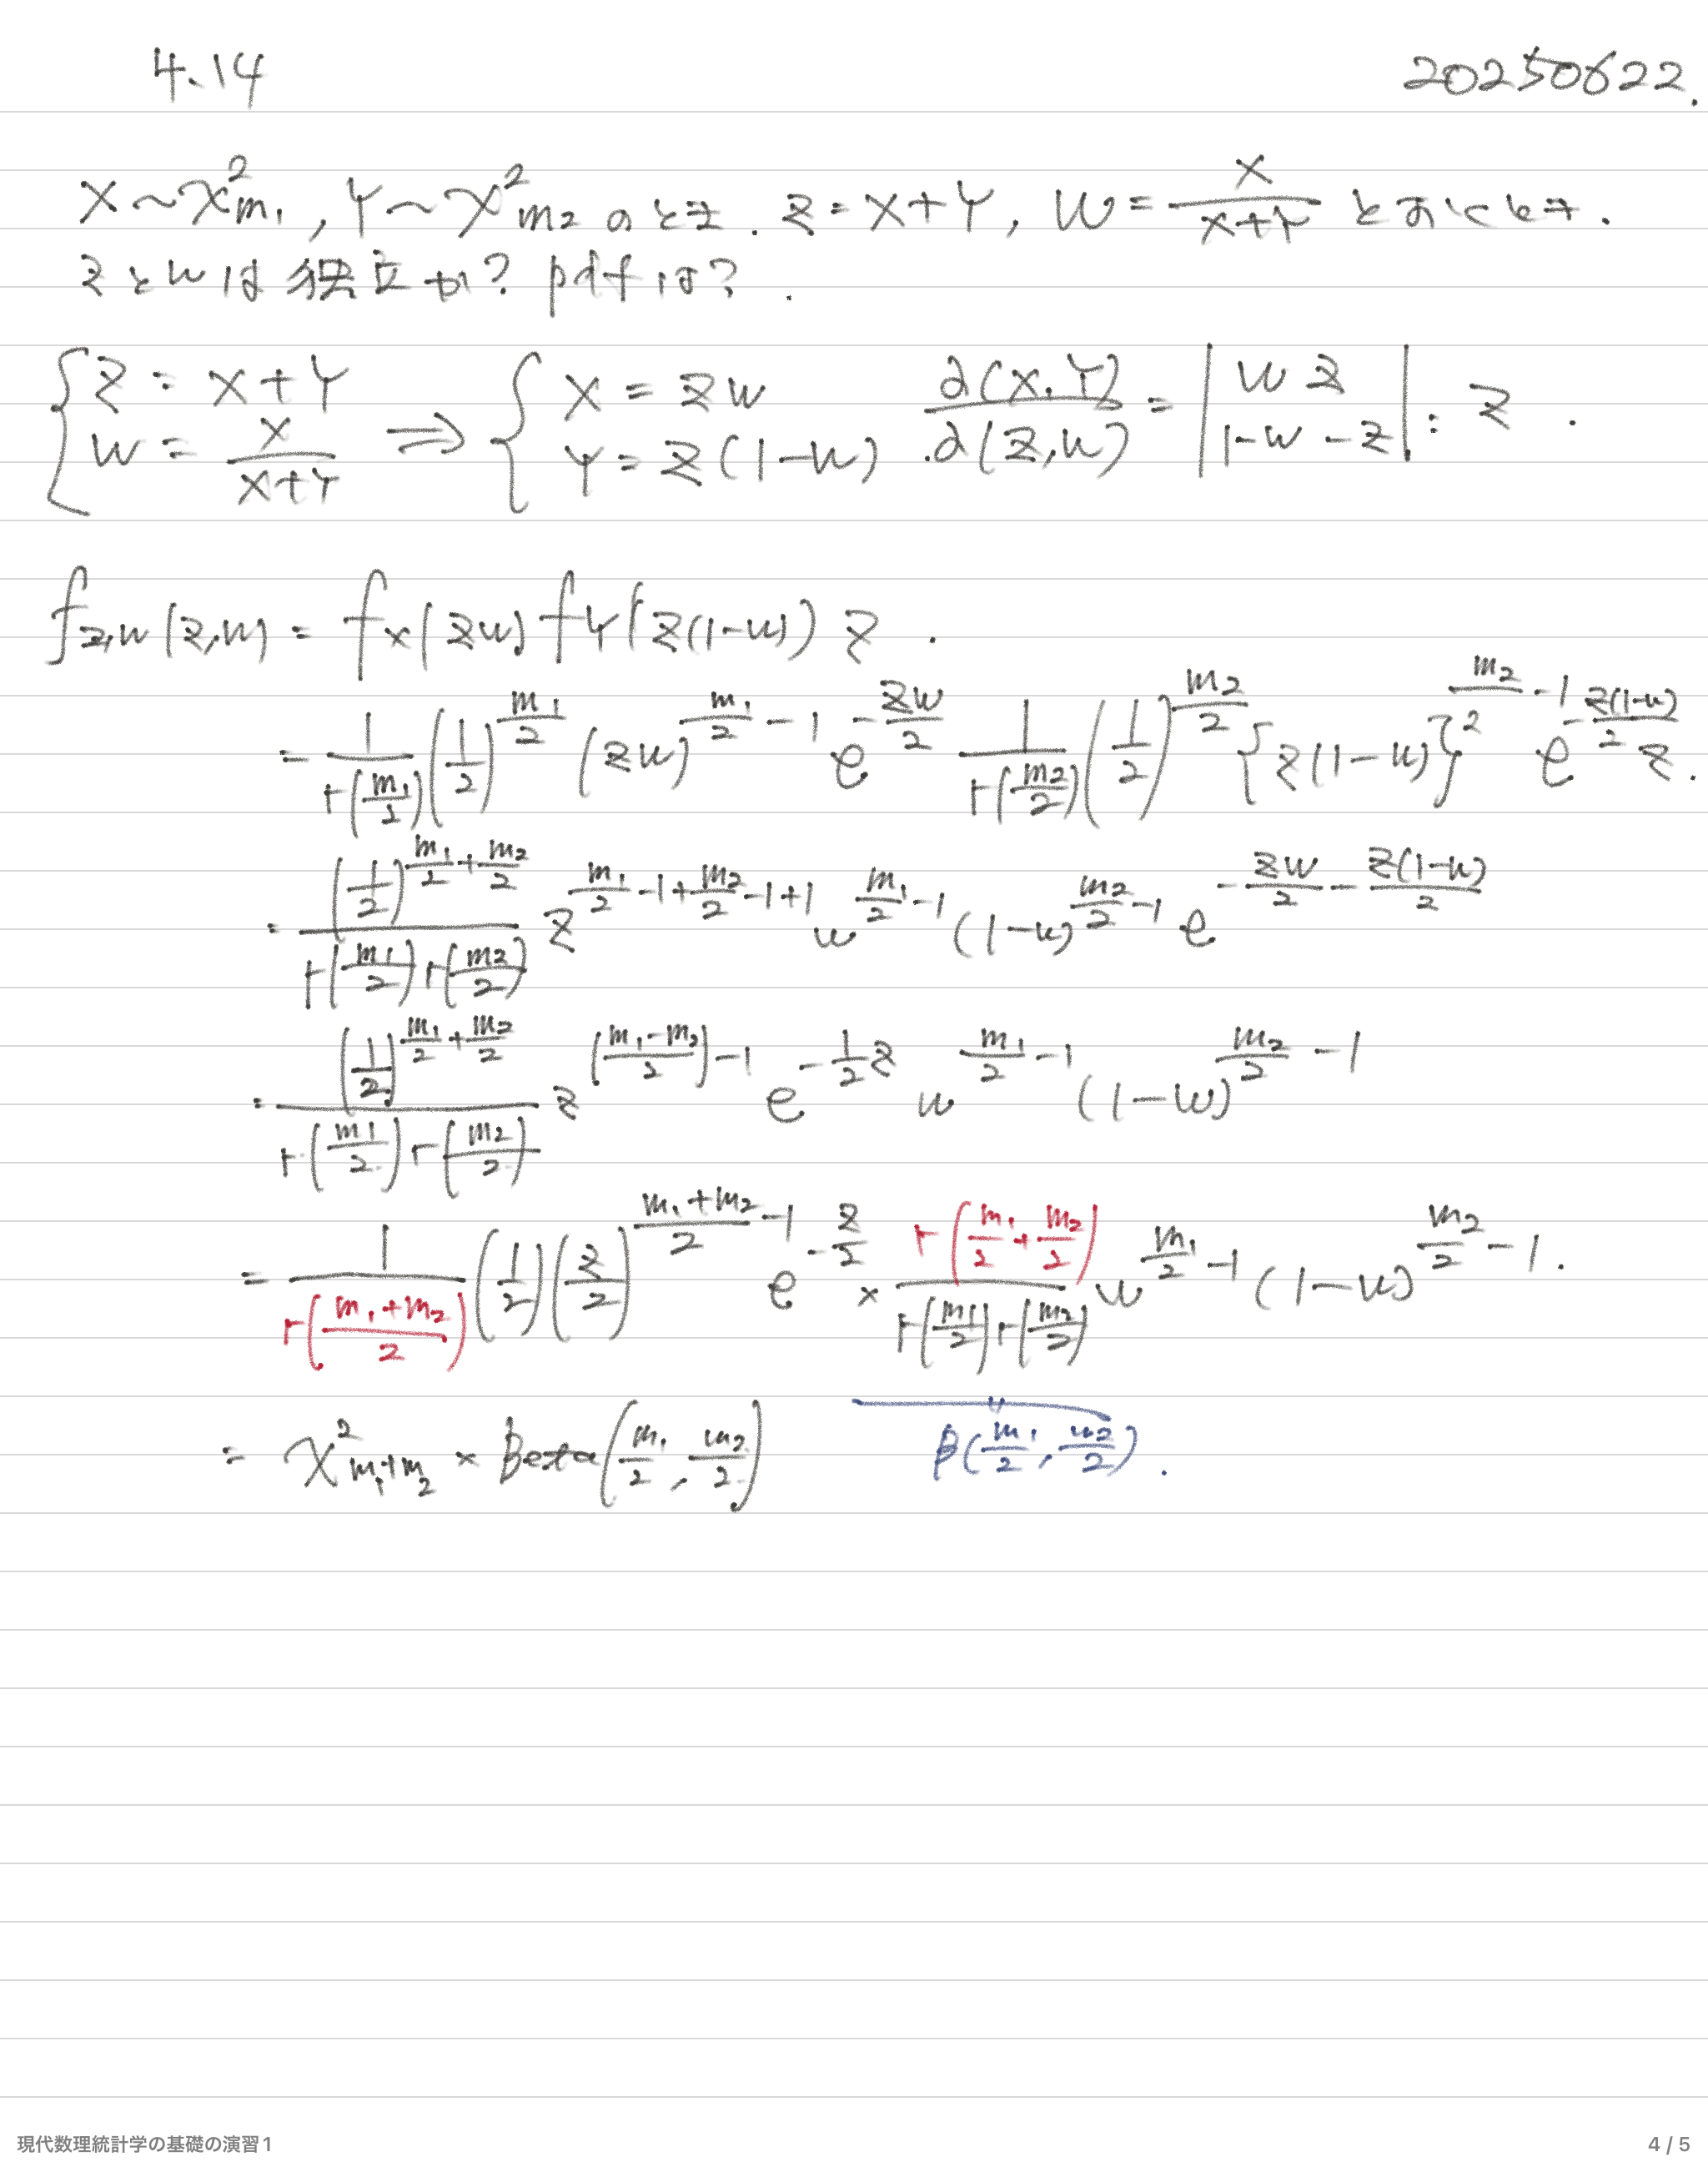 4.14 20250622.
X ~ χ²_{m₁}, Y ~ χ²_{m₂} のとき. Z = X+Y, W = \frac{X}{X+Y} とおくとき.
ZとWは独立か? pdfは?
\begin{cases} Z = X+Y \\ W = \frac{X}{X+Y} \end{cases} ⇒ \begin{cases} X = ZW \\ Y = Z(1-W) \end{cases} \frac{∂(X,Y)}{∂(Z,W)} = \begin{vmatrix} W & Z \\ 1-W & -Z \end{vmatrix} = Z.
f_{Z,W}(Z,W) = f_X(ZW) f_Y(Z(1-W)) Z.
= \frac{1}{Γ(\frac{m₁}{2})} (\frac{1}{2})^{\frac{m₁}{2}} (ZW)^{\frac{m₁}{2}-1} e^{-\frac{ZW}{2}} \frac{1}{Γ(\frac{m₂}{2})} (\frac{1}{2})^{\frac{m₂}{2}} \{Z(1-W)\}^{\frac{m₂}{2}-1} e^{-\frac{Z(1-W)}{2}} Z.
= \frac{(\frac{1}{2})^{\frac{m₁}{2}+\frac{m₂}{2}}}{Γ(\frac{m₁}{2})Γ(\frac{m₂}{2})} Z^{\frac{m₁}{2}-1+\frac{m₂}{2}-1+1} W^{\frac{m₁}{2}-1} (1-W)^{\frac{m₂}{2}-1} e^{-\frac{ZW}{2}-\frac{Z(1-W)}{2}}
= \frac{(\frac{1}{2})^{\frac{m₁}{2}+\frac{m₂}{2}}}{Γ(\frac{m₁}{2})Γ(\frac{m₂}{2})} Z^{(\frac{m₁-m₂}{2})-1} e^{-\frac{1}{2}Z} W^{\frac{m₁}{2}-1} (1-W)^{\frac{m₂}{2}-1}
= \frac{1}{Γ(\frac{m₁+m₂}{2})} (\frac{1}{2})(\frac{Z}{2})^{\frac{m₁+m₂}{2}-1} e^{-\frac{Z}{2}} × \frac{Γ(\frac{m₁}{2}+\frac{m₂}{2})}{Γ(\frac{m₁}{2})Γ(\frac{m₂}{2})} W^{\frac{m₁}{2}-1} (1-W)^{\frac{m₂}{2}-1}.
= χ²_{m₁+m₂} × Beta(\frac{m₁}{2}, \frac{m₂}{2}) β(\frac{m₁}{2}, \frac{m₂}{2}).
現代数理統計学の基礎の演習1 4 / 5